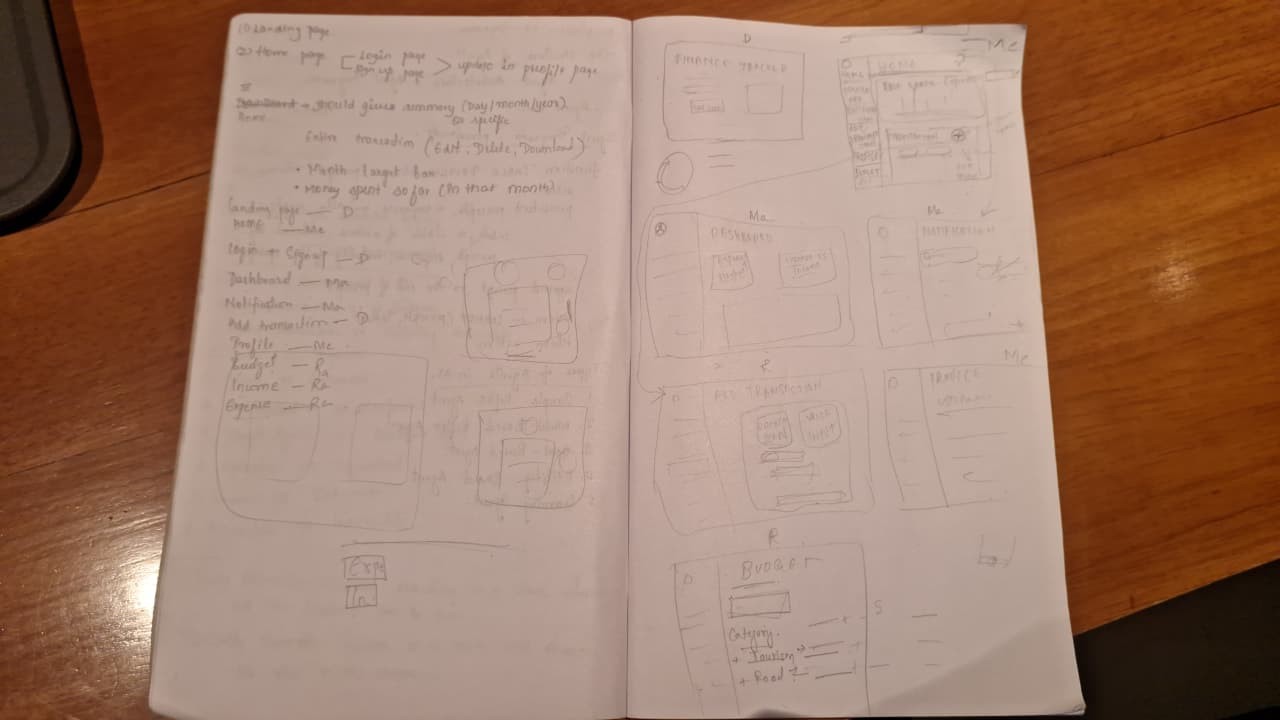 (1) Landing page
(2) Home page
Login page
Sign up page
> update in profile page
Dashboard → should gives summary (Day/month/year)
Home
or specific
Entire transaction (Edit, Delete, Download)
• Month target bar
• Money spent so far (In that month)
Landing page — D
Home — Me
Login + Signup — D
Dashboard — Ma
Notification — Ma
Add transaction — D
Profile — Me
Budget — Ra
Income — Ra
Expense — Ra
Expe
In
D
FINANCE TRACKER
Me
HOME
PROFILE
Ma
DASHBOARD
Ma
NOTIFICATION
R
ADD TRANSACTION
VOICE INPUT
Me
PROFILE
R
BUDGET
Category.
+ Tourism
+ Road
S